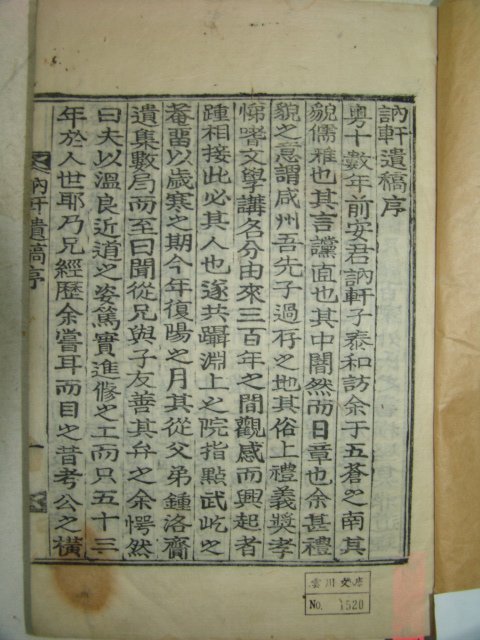 訥軒遺稿序
粤十數年前安君訥軒子泰和訪余于五蒼之南其
貌儒雅也其言讜直也其中闇然而日章也余甚禮
貌之意謂咸州吾先子過存之地其俗上禮義獎孝
悌嗜文學講名分由來三百年之間觀感而興起者
踵相接此必其人也遂共躡淵上之院指點武屹之
菴留以歲寒之期今年復陽之月其從父弟鍾洛齎
遺集數局而至曰聞從兄與子友善其弁之余愕然
曰夫以溫良近道之姿篤實進修之工而只五十三
年於人世耶乃兄經歷余嘗耳而目之昔考公之橫
訥軒遺稿序
一
雲川文庫
No. 1520